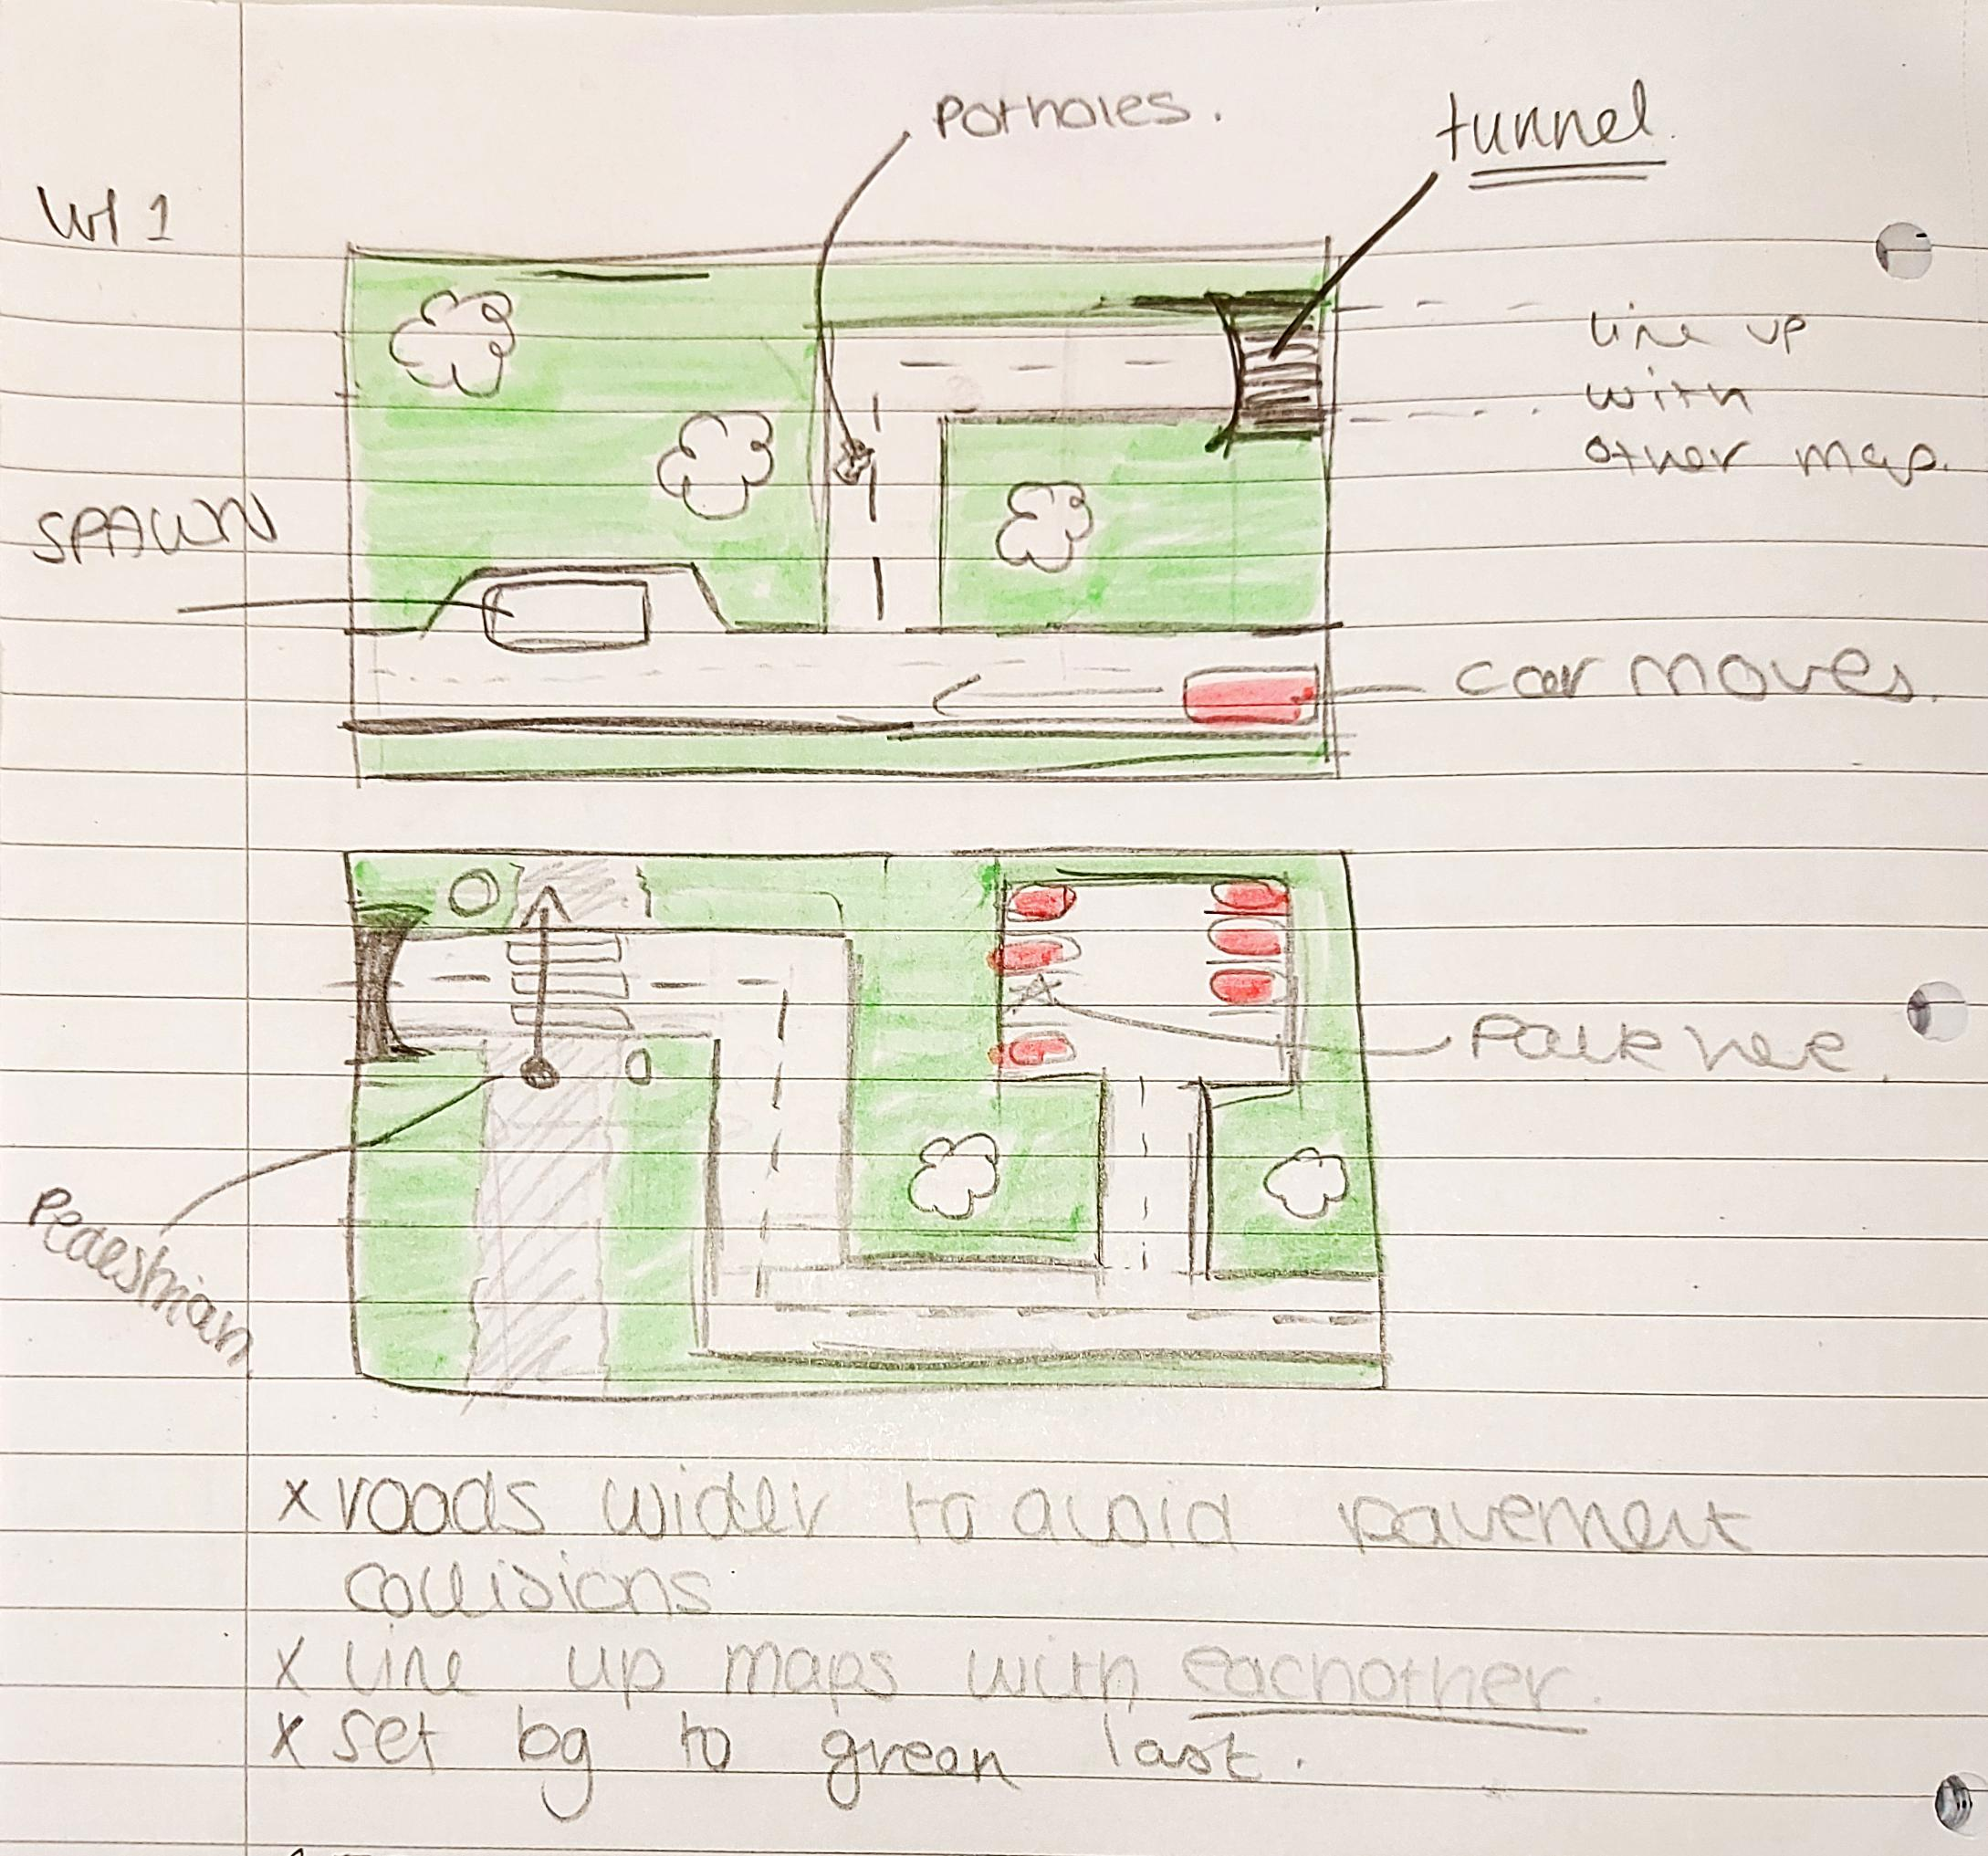 potholes.
tunnel.
line up
with
other map.
SPAWN
car moves.
park here.
Pedestrian
x roads wider to avoid pavement
collisions
x line up maps with eachother.
x set bg to green last.